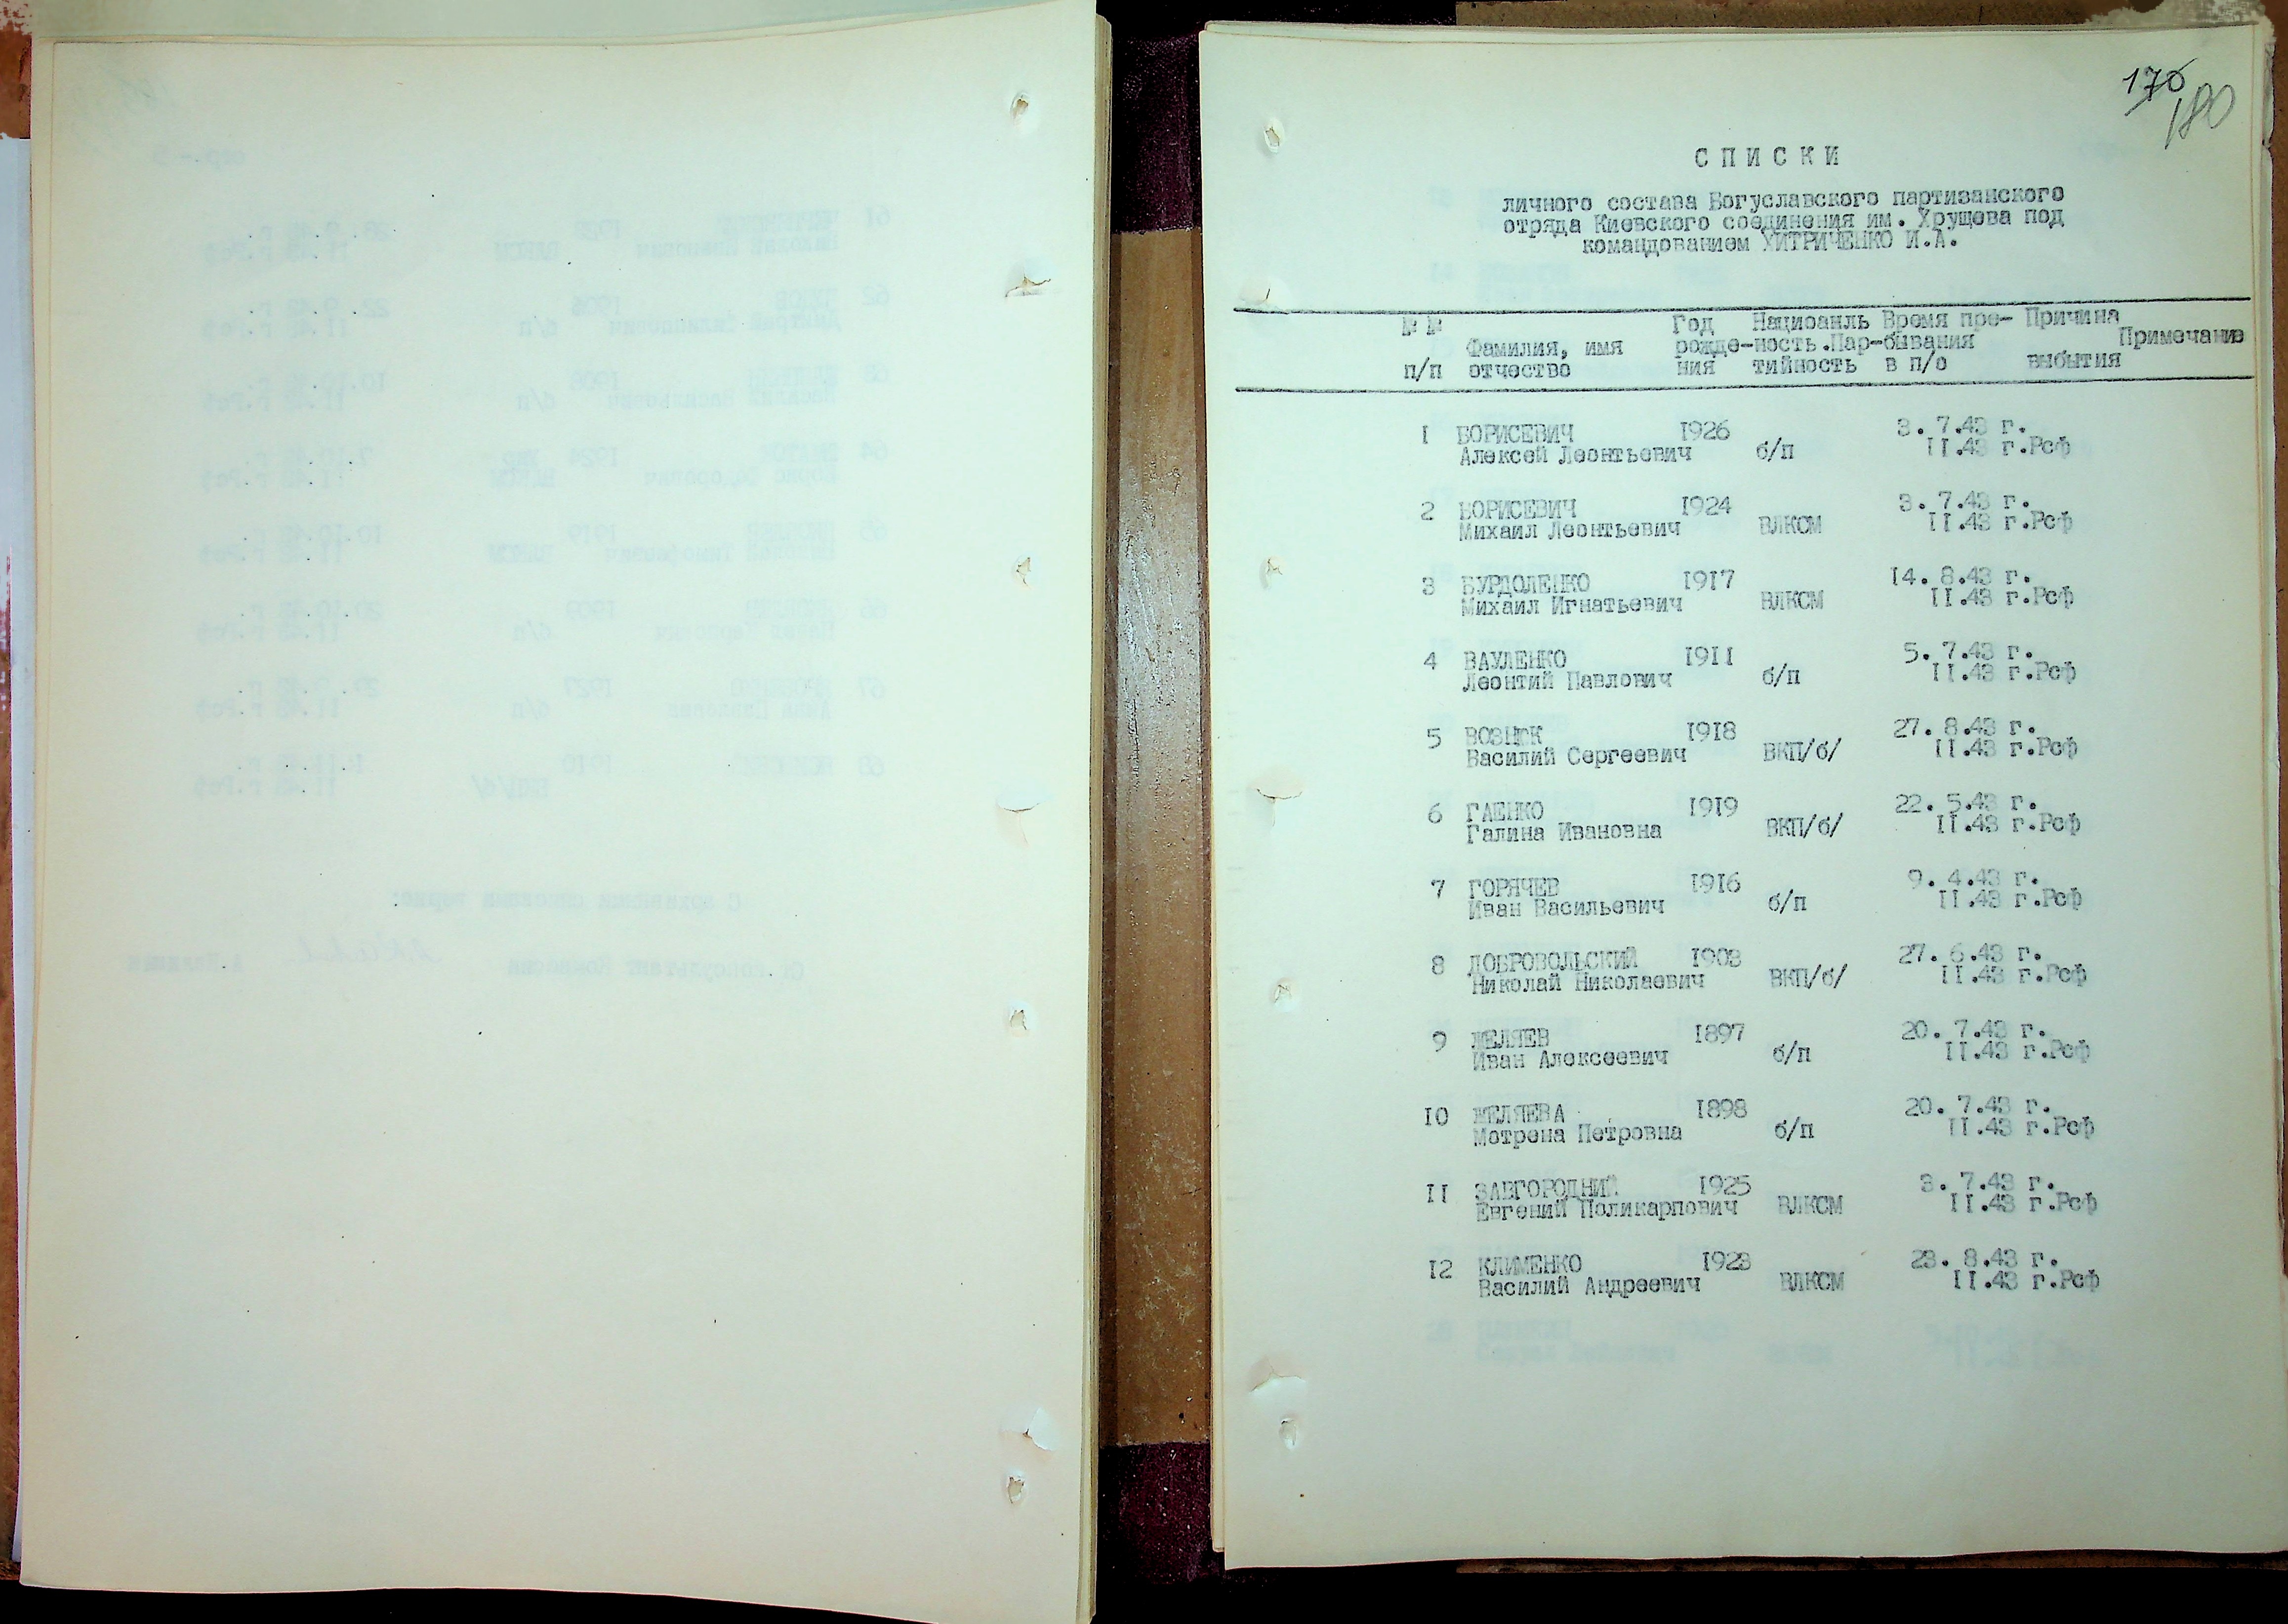 176
180
СПИСКИ
личного состава Богуславского партизанского
отряда Киевского соединения им. Хрущева под
командованием ХИТРИЧЕНКО И.А.
№ № Год Нациоанль Время пре- Причина
Фамилия, имя рожде-ность.Пар-бывания Примечание
п/п отчество ния тийность в п/о выбытия
1 БОРИСЕВИЧ 1926 3. 7.43 г.
Алексей Леонтьевич б/п II.43 г.Рсф
2 БОРИСЕВИЧ 1924 3. 7.43 г.
Михаил Леонтьевич ВЛКСМ II.43 г.Рсф
3 БУРДОЛЕНКО 1917 14. 8.43 г.
Михаил Игнатьевич ВЛКСМ II.43 г.Рсф
4 ВАУЛЕНКО 1911 5. 7.43 г.
Леонтий Павлович б/п II.43 г.Рсф
5 1918 27. 8.43 г.
Василий Сергеевич ВКП/б/ II.43 г.Рсф
6 ГАЕНКО 1919 22. 5.43 г.
Галина Ивановна ВКП/б/ II.43 г.Рсф
7 ГОРЯЧЕВ 1916 9. 4.43 г.
Иван Васильевич б/п II.43 г.Рсф
8 ДОБРОВОЛЬСКИЙ 1903 27. 6.43 г.
Николай Николаевич ВКП/б/ II.43 г.Рсф
9 ЖЕЛЯЕВ 1897 20. 7.43 г.
Иван Алексеевич б/п II.43 г.Рсф
10 ЖЕЛЯЕВА 1898 20. 7.43 г.
Мотрена Петровна б/п II.43 г.Рсф
II ЗАВГОРОДНИЙ 1925 3. 7.43 г.
Евгений Поликарпович ВЛКСМ II.43 г.Рсф
12 КЛИМЕНКО 1923 23. 8.43 г.
Василий Андреевич ВЛКСМ II.43 г.Рсф